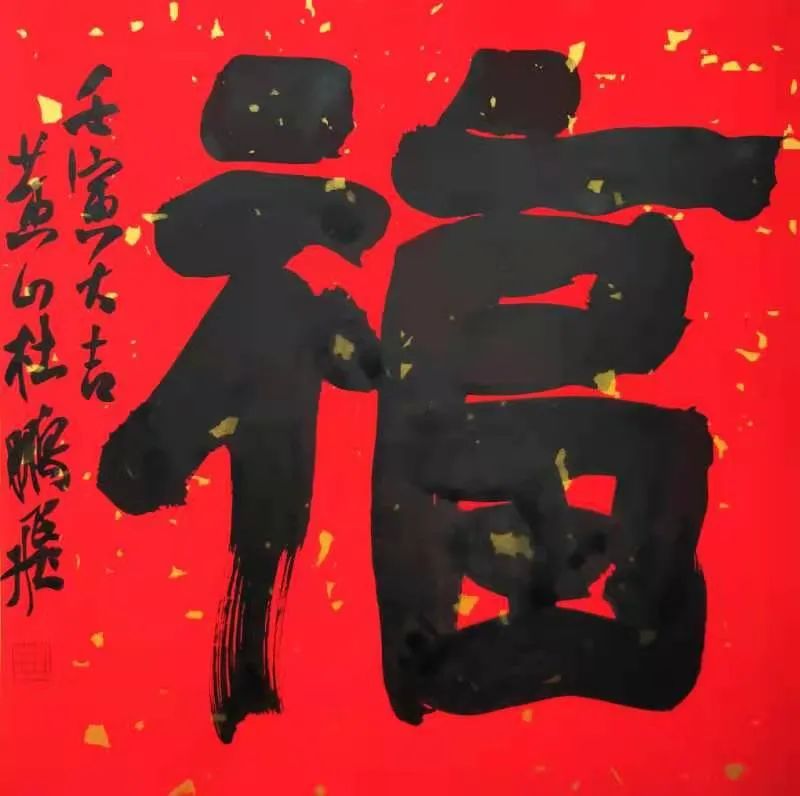 福
壬寅大吉
黄山杜鹏飞